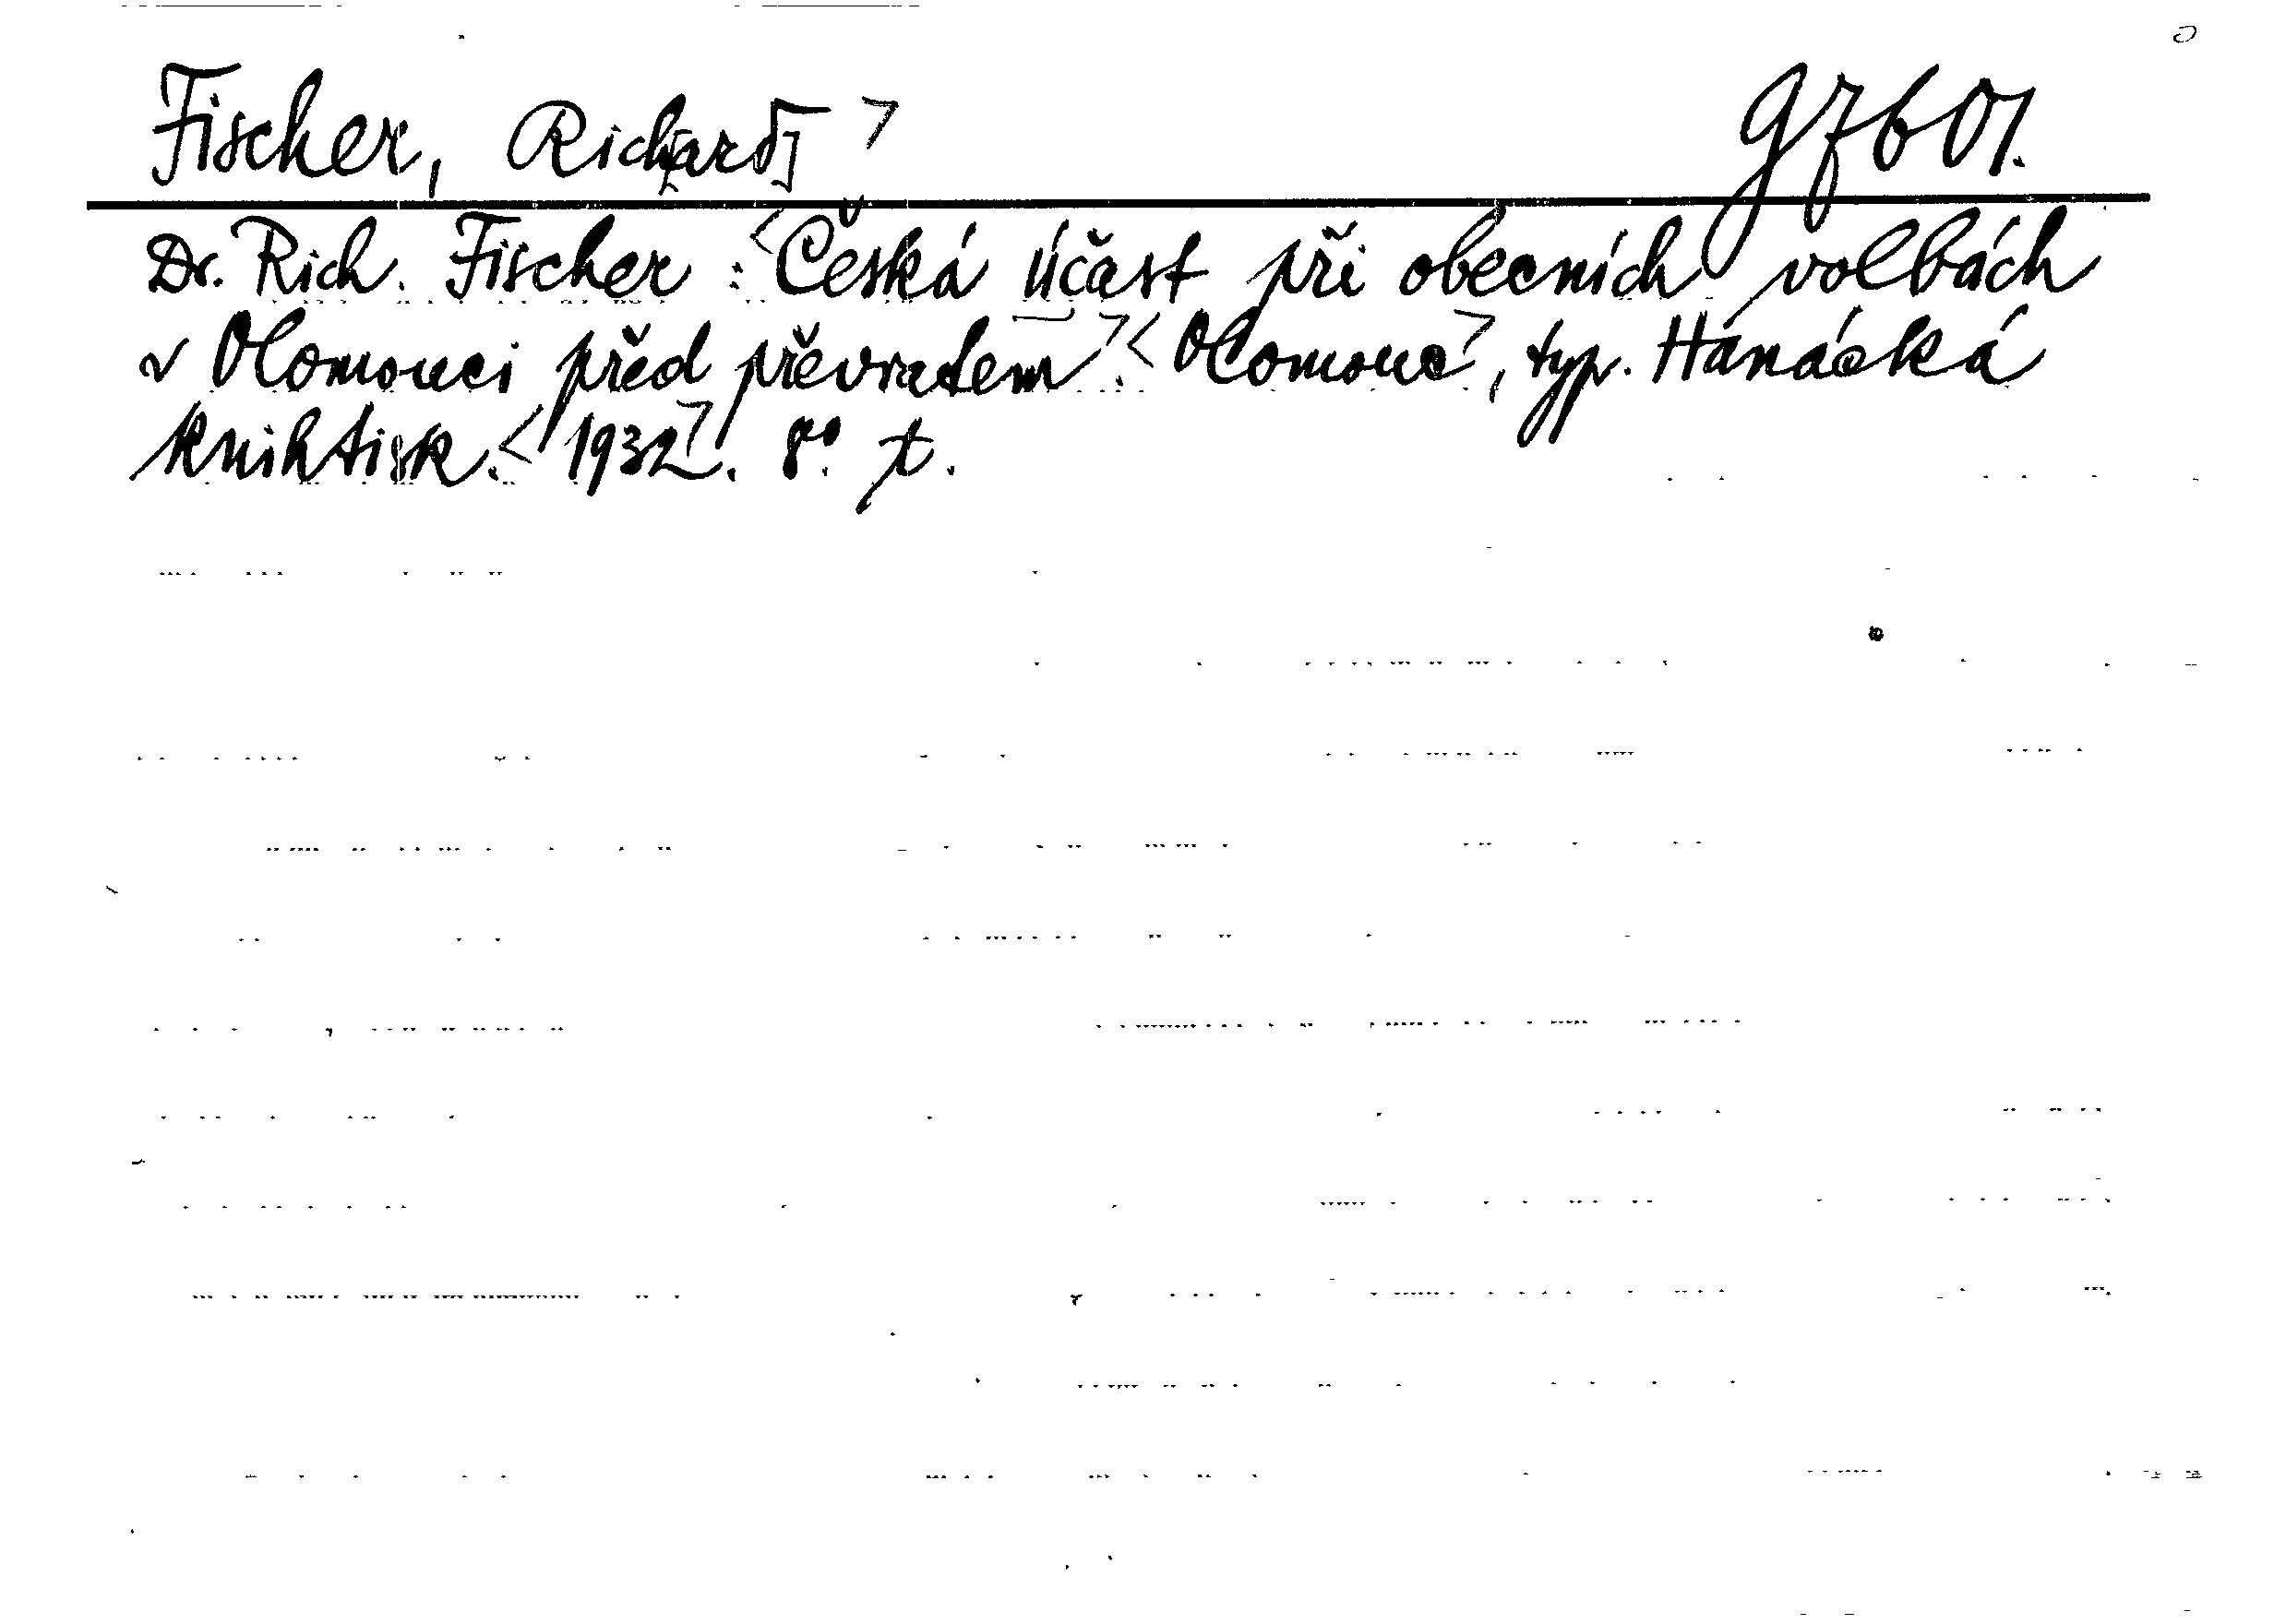 Fischer, Rich[ard] > 97601.
Dr. Rich. Fischer : <Česká účast při obecních volbách
v Olomouci před převratem>. <Olomouc>, typ. Hanácká
knihtisk. <1932>. 8°.